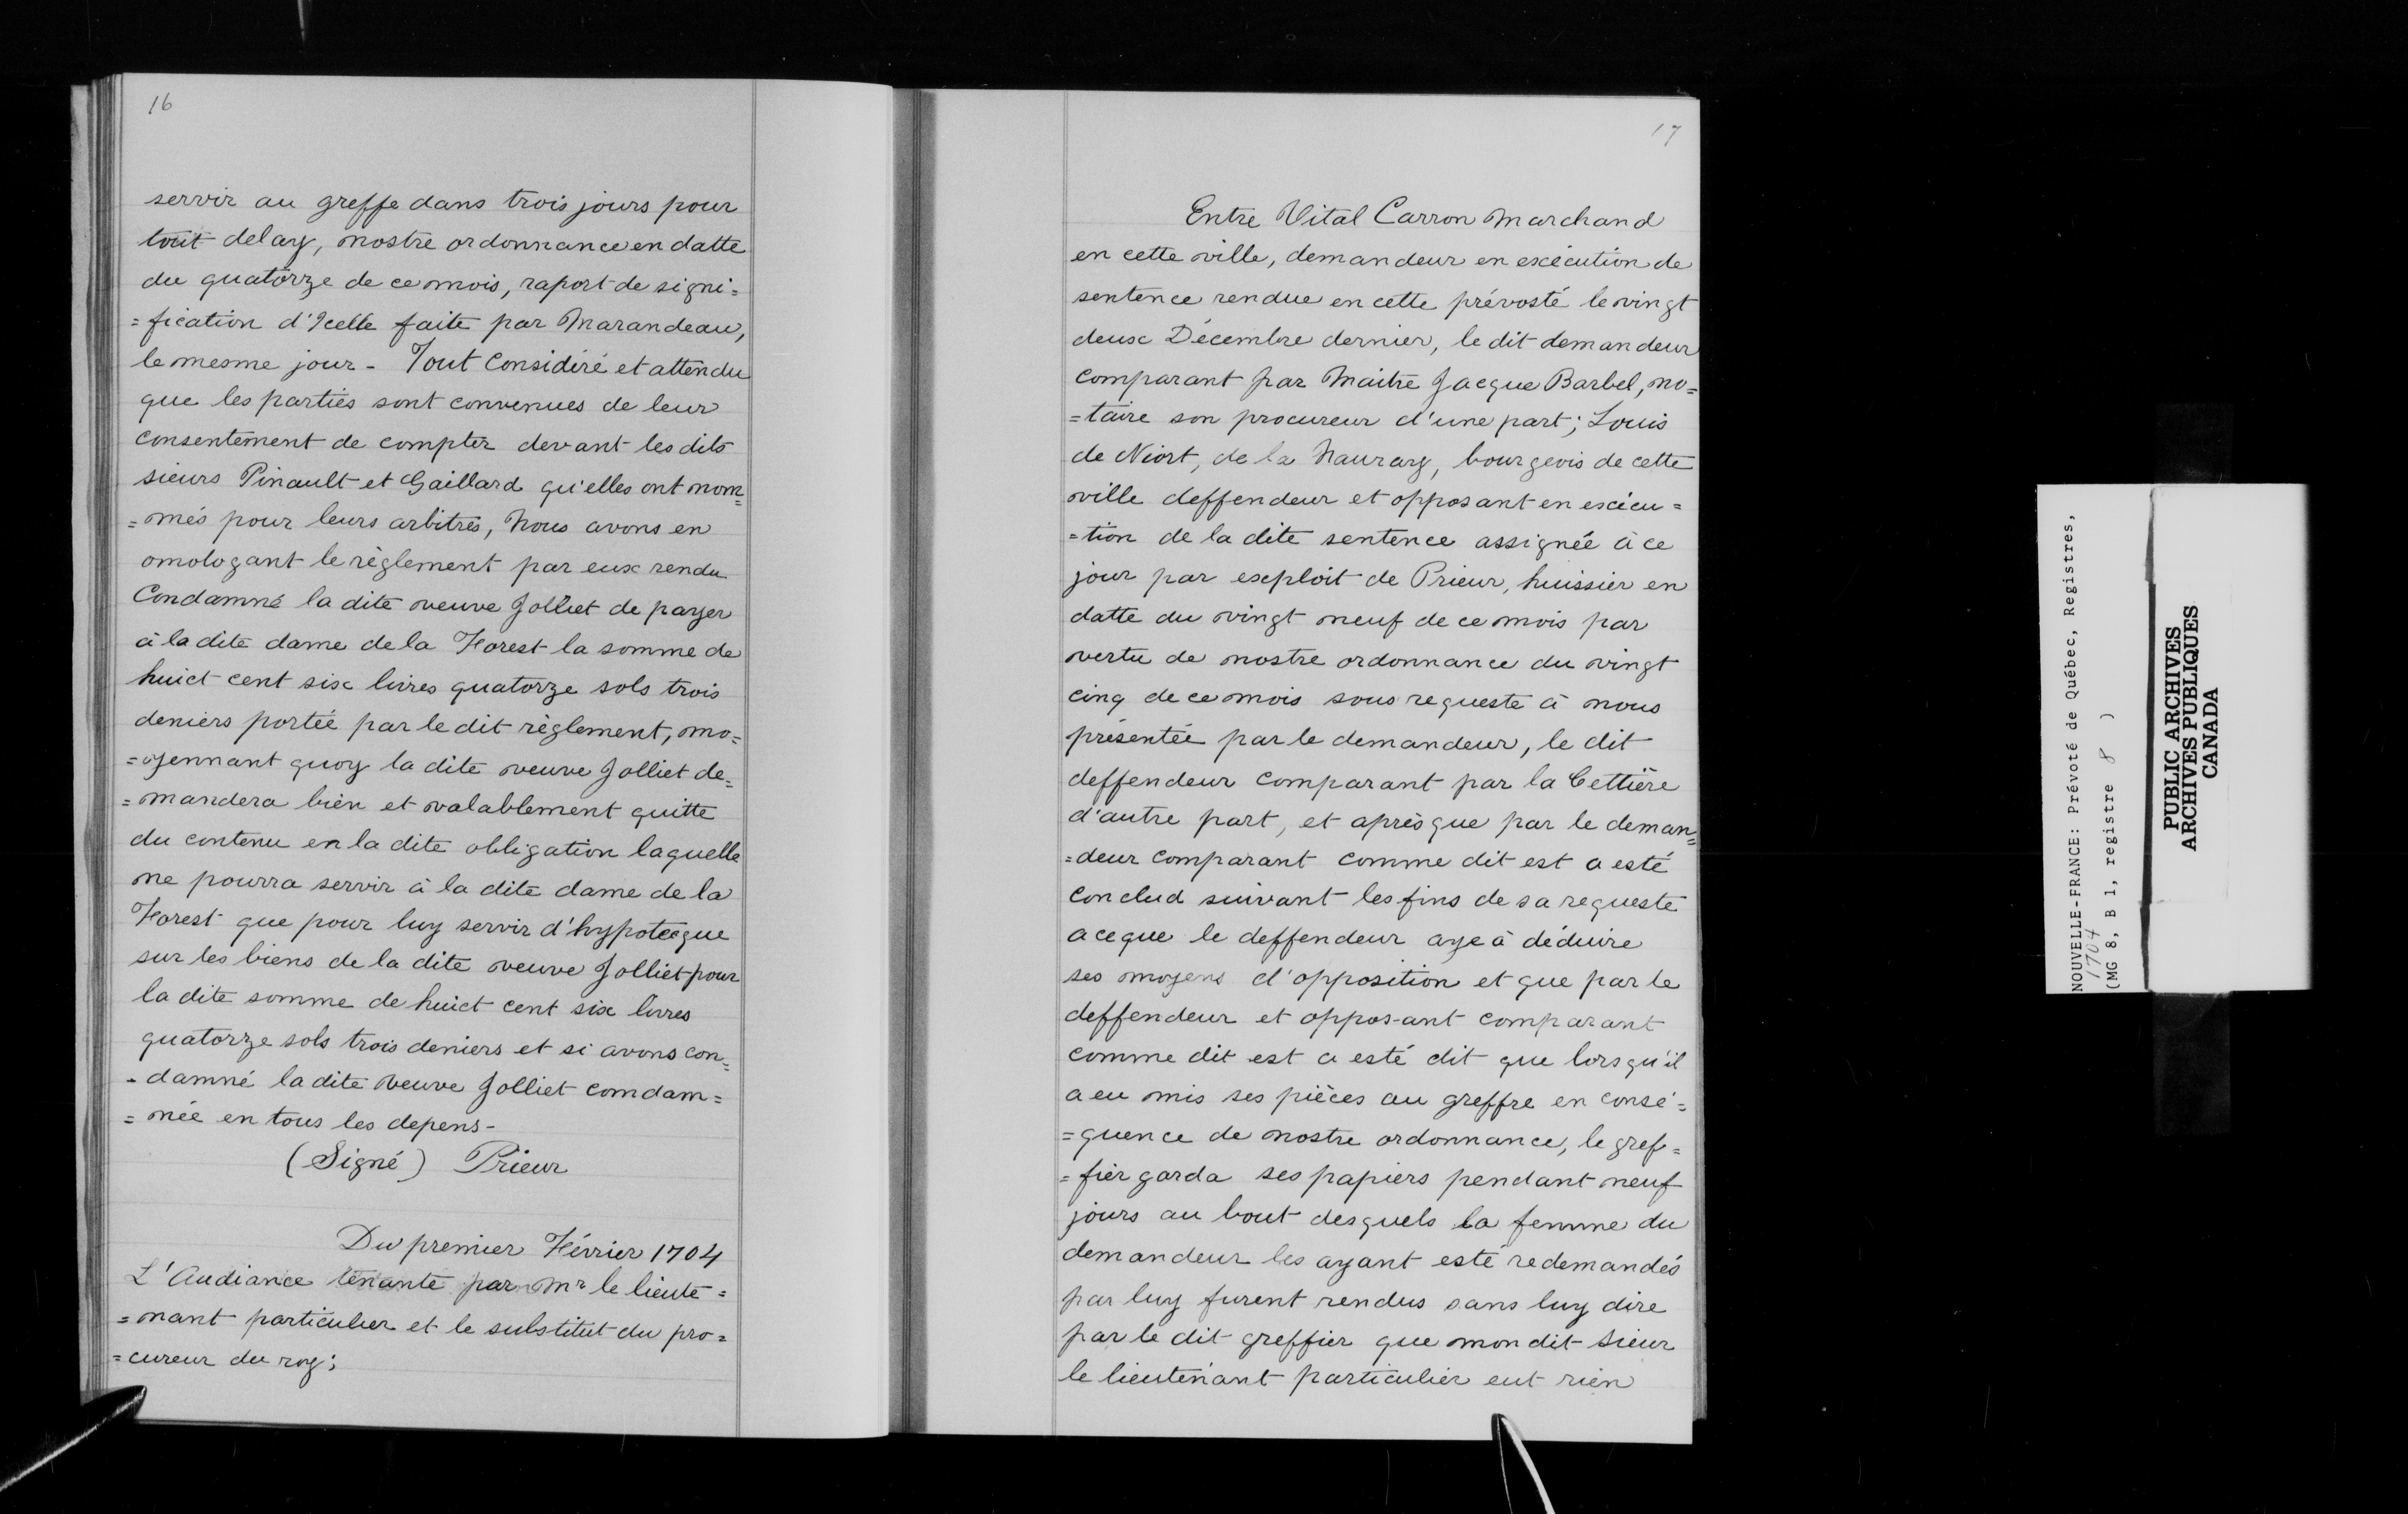 16
servir au greffe dans trois jours pour
tout delay, nostre ordonnance en datte
du quatorze de ce mois, raport de signi=
=fication d'Icelle faite par Marandeau,
le mesme jour - Tout Considéré et attendu
que les parties sont convenues de leur
consentement de compter devant les dits
sieurs Pinault et Gaillard qu'elles ont nom=
=més pour leurs arbitres, Nous avons en
omologant le règlement par eux rendu
Condamné la dite veuve Jolliet de payer
à la dite dame de la Forest la somme de
huict cent six livres quatorze sols trois
deniers portée par le dit règlement, mo=
=yennant quoy la dite veuve Jolliet de=
=mandera bien et valablement quitte
du contenu en la dite obligation laquelle
ne pourra servir à la dite dame de la
Forest que pour luy servir d'hypotecque
sur les biens de la dite veuve Jolliet pour
la dite somme de huict cent six livres
quatorze sols trois deniers et si avons con=
-damné la dite veuve Jolliet comdam=
=née en tous les depens-
(Signé) Prieur
Du premier Février 1704
L'Audiance tenante par Mr le lieute=
=nant particulier et le substitut du pro=
=cureur du roy;
17
Entre Vital Carron Marchand
en cette ville, demandeur en exécution de
sentence rendue en cette prévosté le vingt
deux Décembre dernier, le dit demandeur
comparant par Maitre Jacque Barbel, no=
=taire son procureur d'une part; Louis
de Niort, de la Nauray, bourgeois de cette
ville deffendeur et opposant en exécu=
=tion de la dite sentence assignée à ce
jour par exploit de Prieur, huissier en
datte du vingt neuf de ce mois par
vertu de nostre ordonnance du vingt
cinq de ce mois sous requeste à nous
présentée par le demandeur, le dit
deffendeur comparant par la Cettière
d'autre part, et après que par le deman=
=deur comparant comme dit est a esté
conclud suivant les fins de sa requeste
a ce que le deffendeur aye à déduire
ses moyens d'opposition et que par le
deffendeur et oppos-ant comparant
comme dit est a esté dit que lorsqu'il
a eu mis ses pièces au greffre en consé=
=quence de nostre ordonnance, le gref=
=fier garda ses papiers pendant neuf
jours au bout desquels la femme du
demandeur les ayant esté redemandés
par luy furent rendus sans luy dire
par le dit greffier que mon dit sieur
le lieutenant particulier eut rien
NOUVELLE-FRANCE: Prévoté de Québec, Registres,
1704
(MG 8, B 1, registre 8 )
PUBLIC ARCHIVES
ARCHIVES PUBLIQUES
CANADA